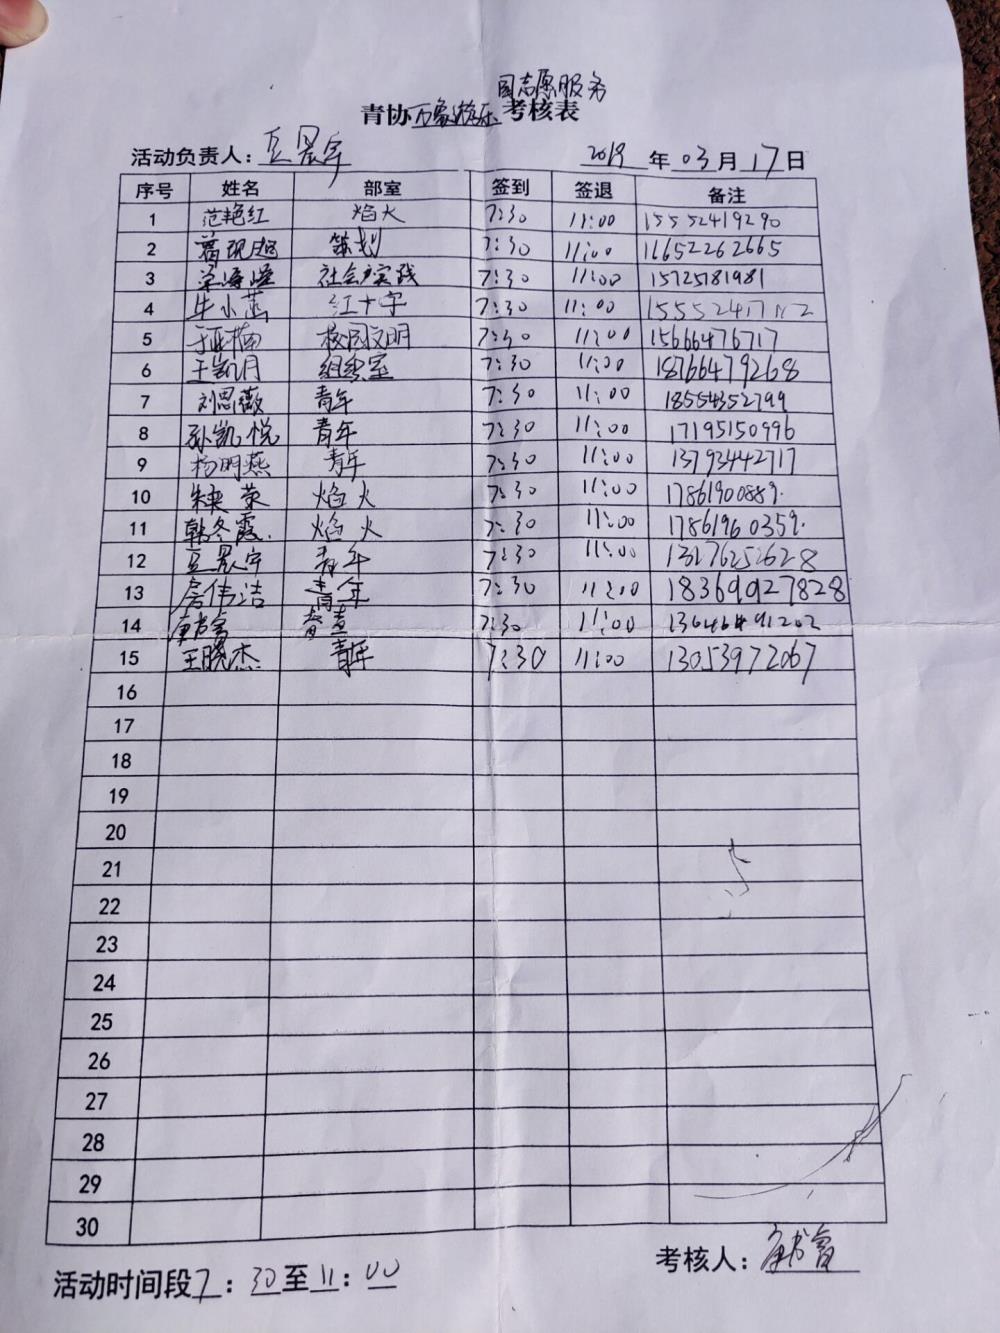 园志愿服务
青协万象游乐考核表
活动负责人：豆晨宇 2019年03月17日
序号 姓名 部室 签到 签退 备注
1 范艳红 焰火 7:30 11:00 15552419290
2 葛砚超 策划 7:30 11:00 11652262665
3 社会实践 7:30 11:00 15725181981
4 牛小菡 红十字 7:30 11:00
5 于亚楠 校园文明 7:30 11:00 15666476717
6 王凯月 组委室 7:30 11:00 18766479268
7 刘思薇 青年 7:30 11:00 18554352799
8 孙凯悦 青年 7:30 11:00 17195150996
9 杨明燕 青年 7:30 11:00 13793442717
10 朱英荣 焰火 7:30 11:00 17861900889.
11 韩冬霞. 焰火 7:30 11:00 17861960359.
12 豆晨宇 青年 7:30 11:00 13276252628
13 房伟洁 青年 7:30 11:00 18369927828
14 7:30 11:00 13646491202
15 王晓杰 青年 7:30 11:00 13053972067
16
17
18
19
20
21
22
23
24
25
26
27
28
29
30
考核人：
活动时间段7：30至11：00